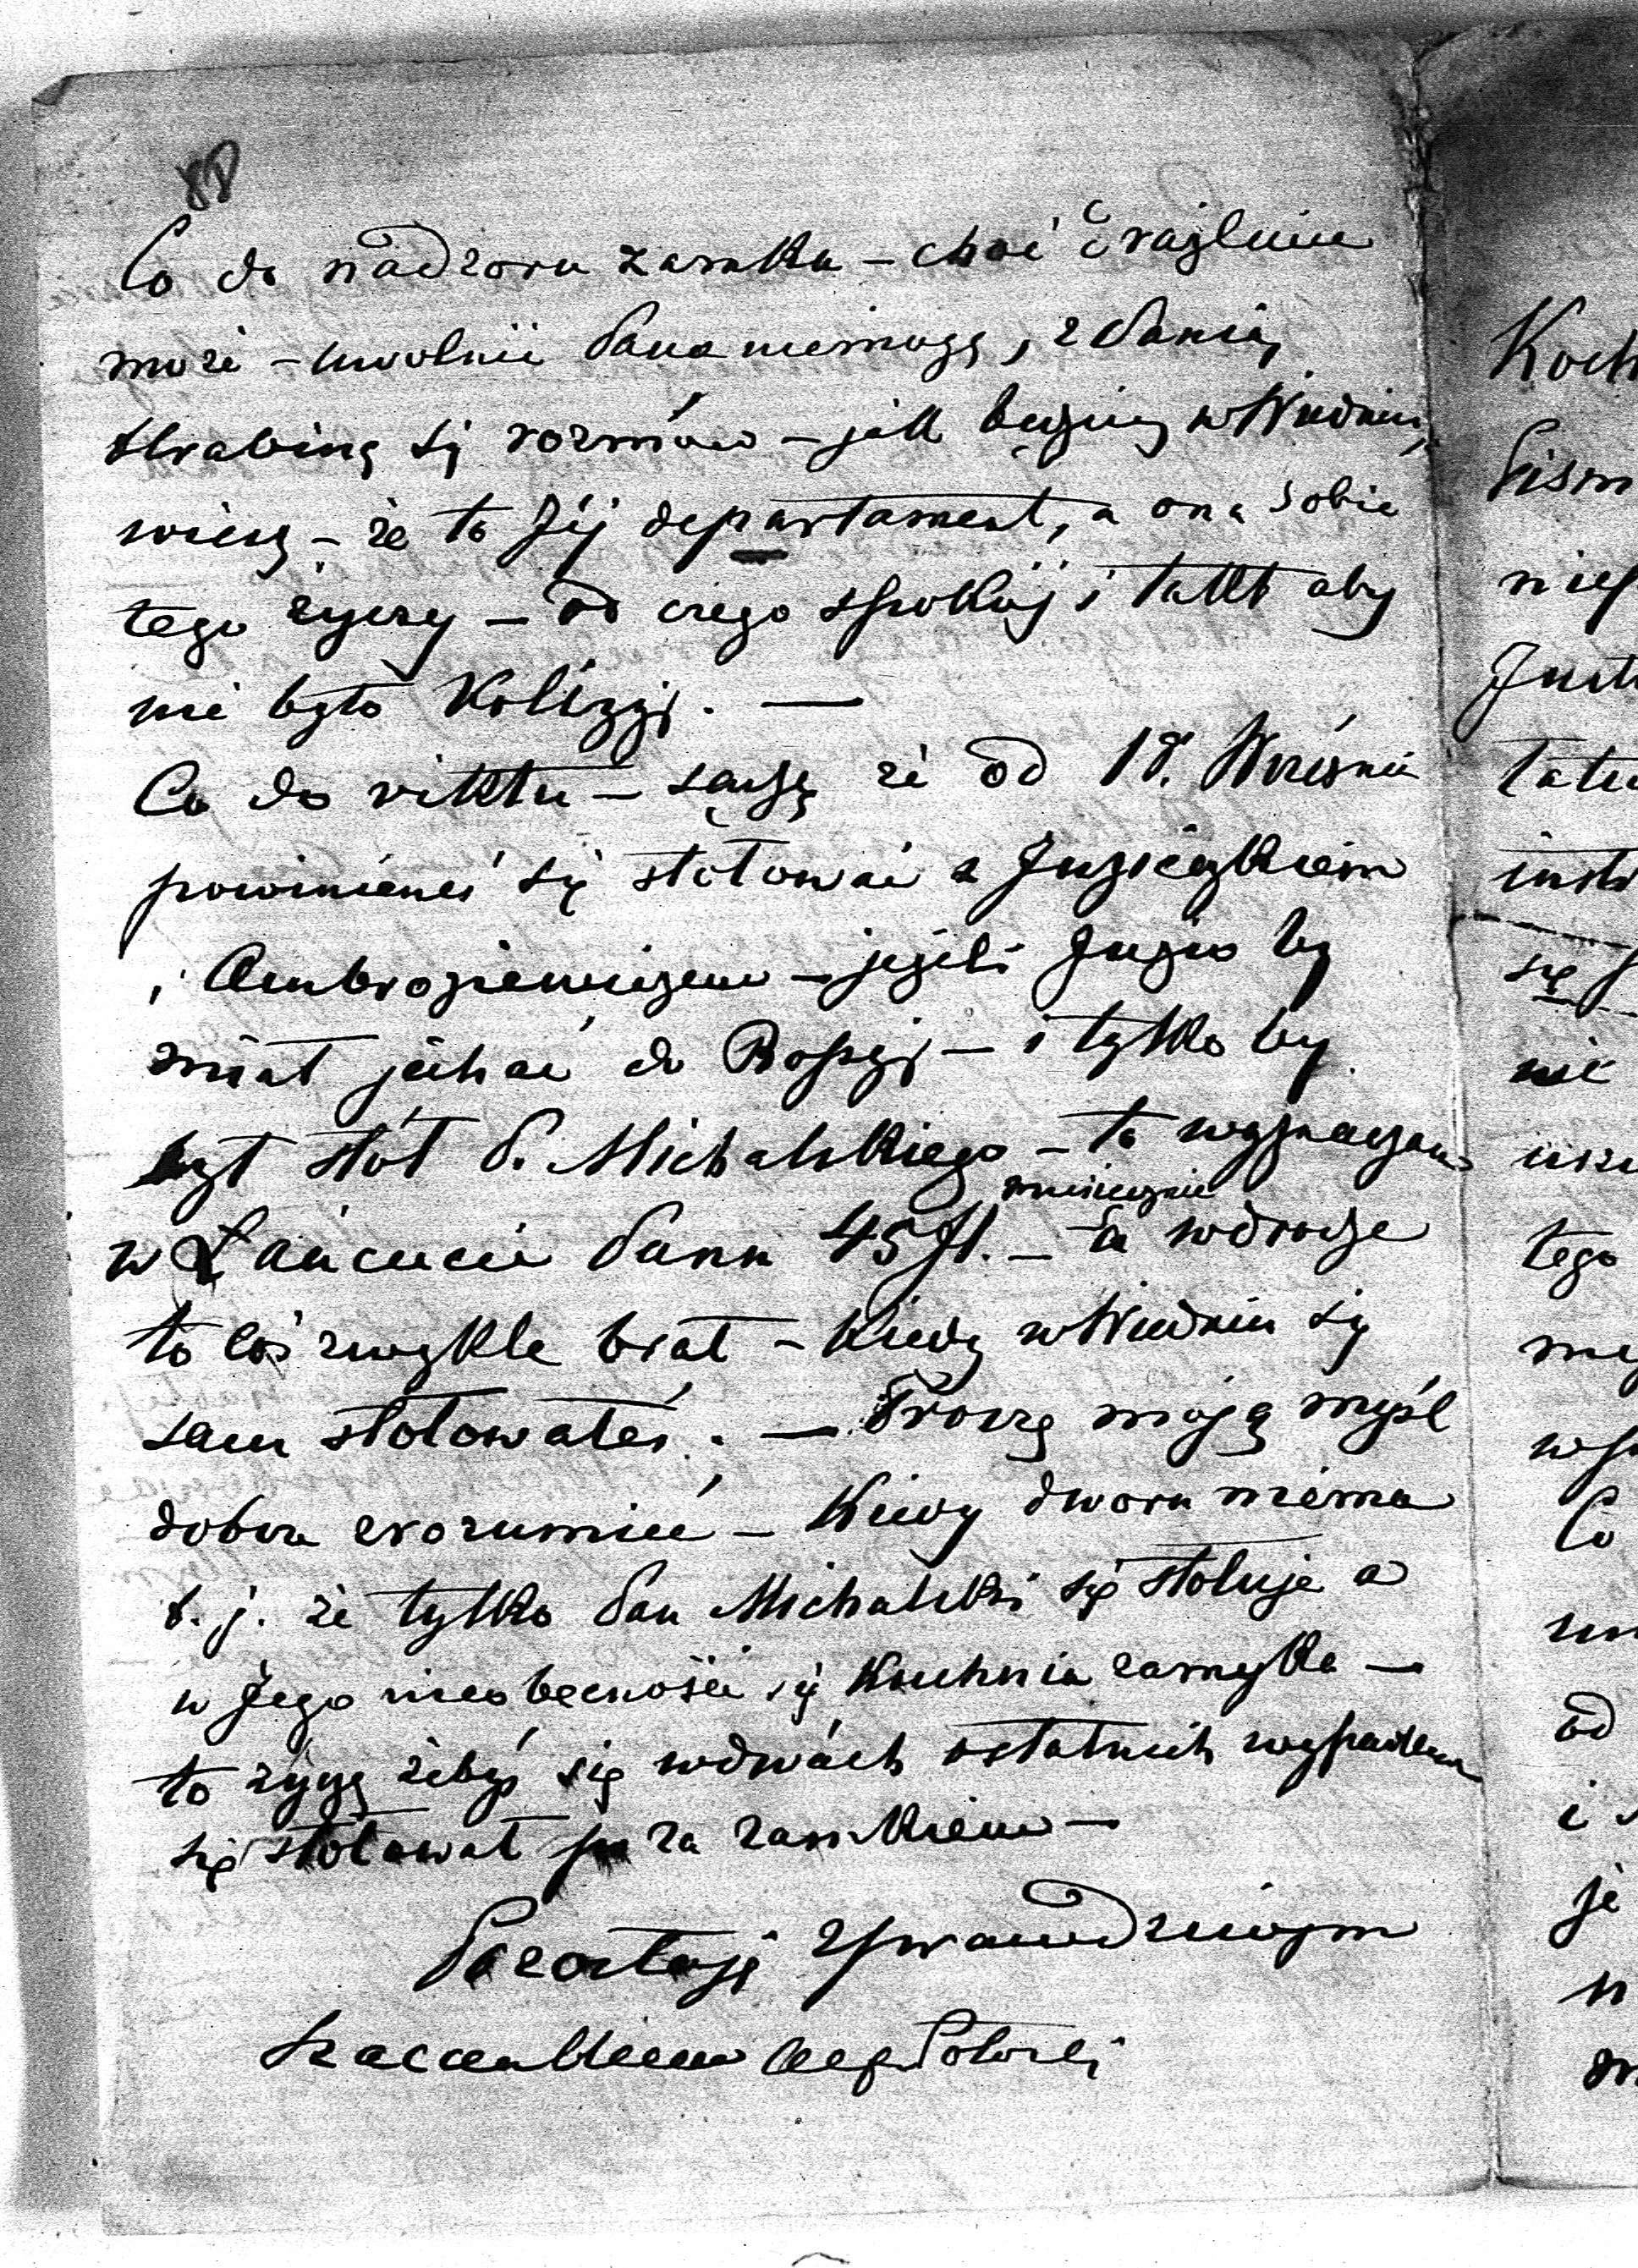 88
Co do nadzoru zamku – choć drażliwa
może – uwolnić Pana niemogę, z Panią
Hrabiną się rozmów – jak będziesz w Wiedniu,
wiesz – że to Jéj departament, a ona sobie
tego życzy – od czego spokój i takt aby
nie było Kolizyj. —
Co do viktu – sądzę że od 18. Września
powinieneś się stołować z Juziczkiem
i Ambroziewiczem – jeżeli Juzio by
miał jechać do Rossyj – i tylko by
był stół P. Michalskiego – to wyznaczam
miesięcznie
w Łańcucie Panu 45 fl. – a w drodze
to coś zwykle brał – kiedy w Wiedniu się
sam stołowałeś. — Proszę moją myśl
dobrze zrozumieć – Kiedy dworu niéma
t. j. że tylko Pan Michalski się stołuje a
w Jego nieobecności się Kuchnia zamyka —
to życzę żebyś się w dwóch ostatnich wypadkach
się stołował za zamkiem —
Pozostaję z prawdziwym
szacunkiem Potocki
Koch
Pism
tego
Co
od
się
nie